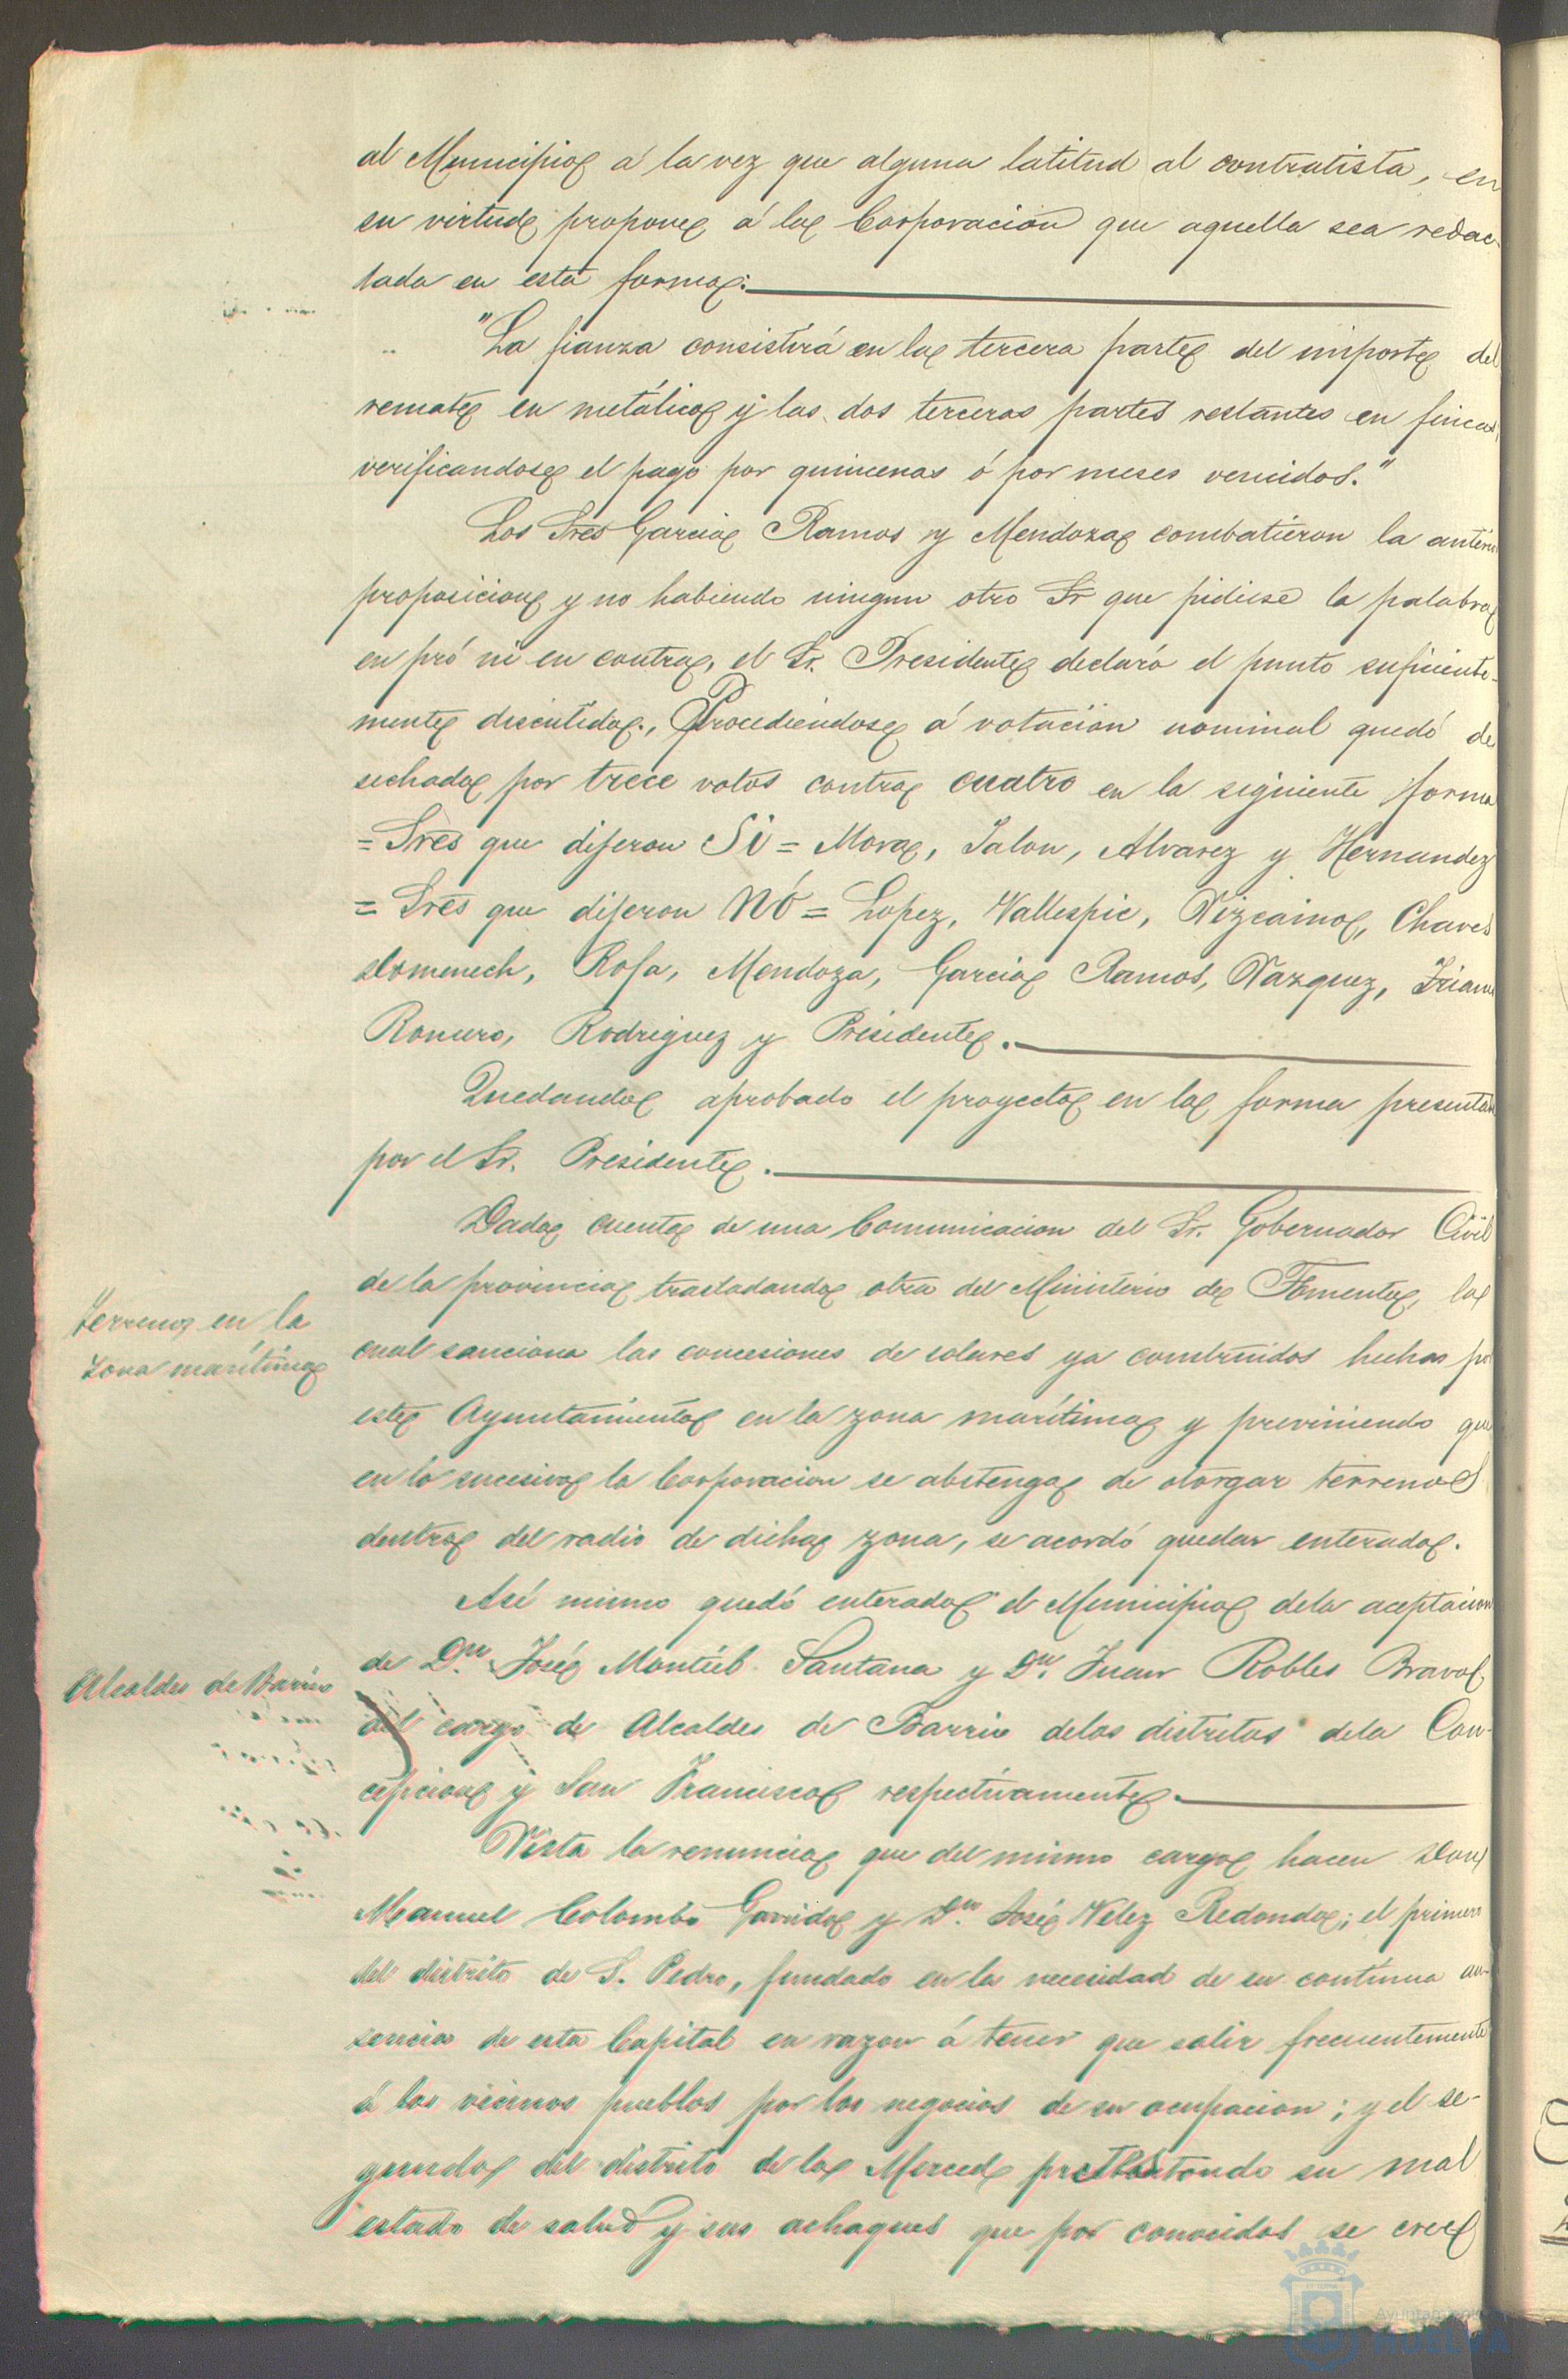 al Municipio á la vez que alguna latitud al contratista, en
su virtud propone á la Corporacion que aquella sea redac-
tada en esta forma:
"La fianza consistirá en la tercera parte del importe del
remate en metálico y las dos terceras partes restantes en fincas,
verificandose el pago por quincenas ó por meses vencidos."
Los Sres Garcia Ramos y Mendoza combatieron la anterior
proposicion y no habiendo ningun otro Sr que pidiese la palabra
en pró ni en contra, el Sr. Presidente declaró el punto suficiente-
mente discutido., Procediendose á votación nominal quedó de
sechada por trece votos contra cuatro en la siguiente forma
= Sres que dijeron Si = Mora, Jalon, Alvarez y Hernandez
= Sres que dijeron NÓ = Lopez, Vallespic, Vizcaino, Chaves
Domenech, Rofa, Mendoza, Garcia Ramos, Vazquez, Triana
Romero, Rodriguez y Presidente.
Quedando aprobado el proyecto en la forma presentada
por el Sr. Presidente.
Dada cuenta de una Comunicacion del Sr. Gobernador Civil
de la provincia trasladando otra del Ministerio de Fomento, la
Terrenos en la
zona marítima
cual sanciona las concesiones de solares ya construidos hechas por
este Ayuntamiento en la zona marítima y previniendo que
en lo sucesivo la Corporacion se abstenga de otorgar terrenos
dentro del radio de dicha zona, se acordó quedar enterado.
Asi mismo quedó enterado el Municipio dela aceptacion
Alcaldes de Barrio
de Dn. José Montiel Santana y Dn. Juan Robles Bravo
del cargo de Alcaldes de Barrio delos distritos dela Con-
cepcion y San Francisco respectivamente.
Vista la renuncia que del mismo cargo hacen Don
Manuel Colombo Garrido y Dn. José Velez Redondo; el primero
del distrito de S. Pedro, fundado en la necesidad de su continua au-
sencia de esta Capital en razon á tener que salir frecuentemente
á los vecinos pueblos por los negocios de su ocupacion; y el se-
gundo del distrito de la Merced pretestando su mal
estado de salud y sus achaques que por conocidos se cree
Ayuntamiento
HUELVA